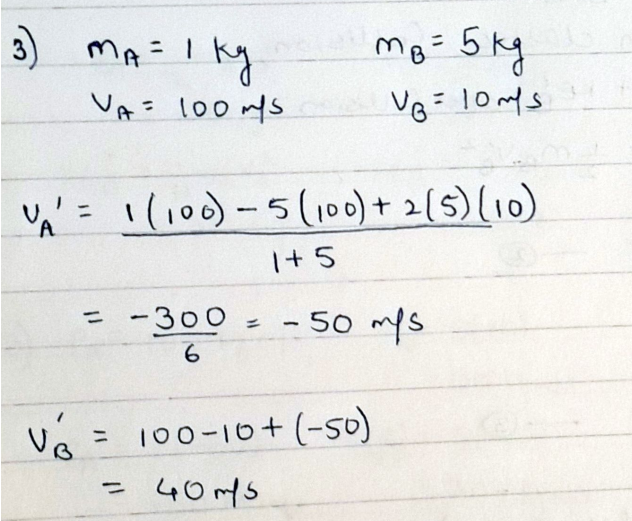 3) mA = 1 kg mB = 5 kg
VA = 100 m/s VB = 10 m/s
VA' = 1(100) - 5(100) + 2(5)(10)
1 + 5
= -300 = - 50 m/s
6
VB' = 100 - 10 + (-50)
= 40 m/s